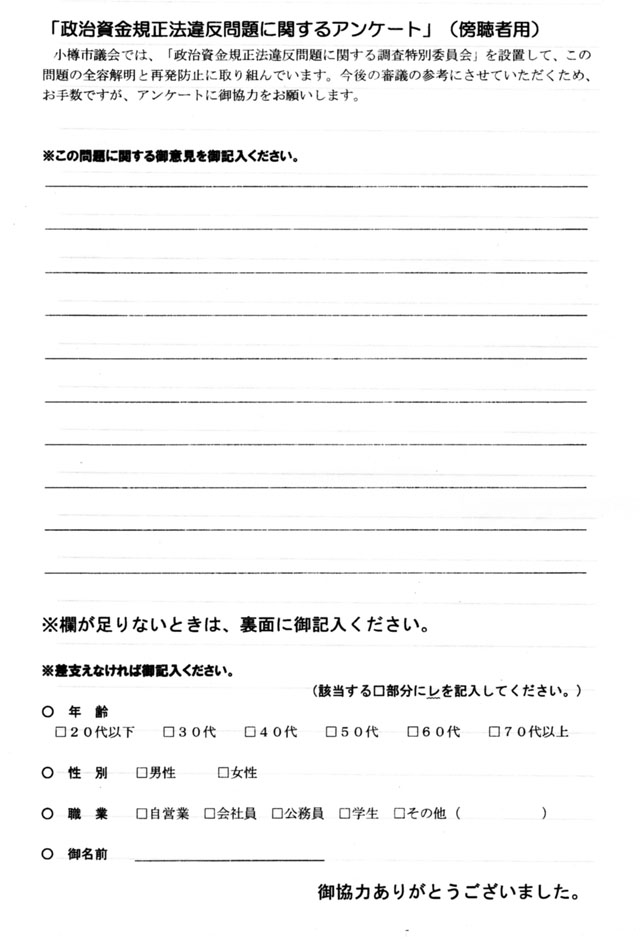 「政治資金規正法違反問題に関するアンケート」（傍聴者用）
小樽市議会では、「政治資金規正法違反問題に関する調査特別委員会」を設置して、この
問題の全容解明と再発防止に取り組んでいます。今後の審議の参考にさせていただくため、
お手数ですが、アンケートに御協力をお願いします。
※この問題に関する御意見を御記入ください。
※欄が足りないときは、裏面に御記入ください。
※差支えなければ御記入ください。
（該当する□部分にレを記入してください。）
○ 年 齢
□２０代以下 □３０代 □４０代 □５０代 □６０代 □７０代以上
○ 性 別 □男性 □女性
○ 職 業 □自営業 □会社員 □公務員 □学生 □その他（ ）
○ 御名前
御協力ありがとうございました。